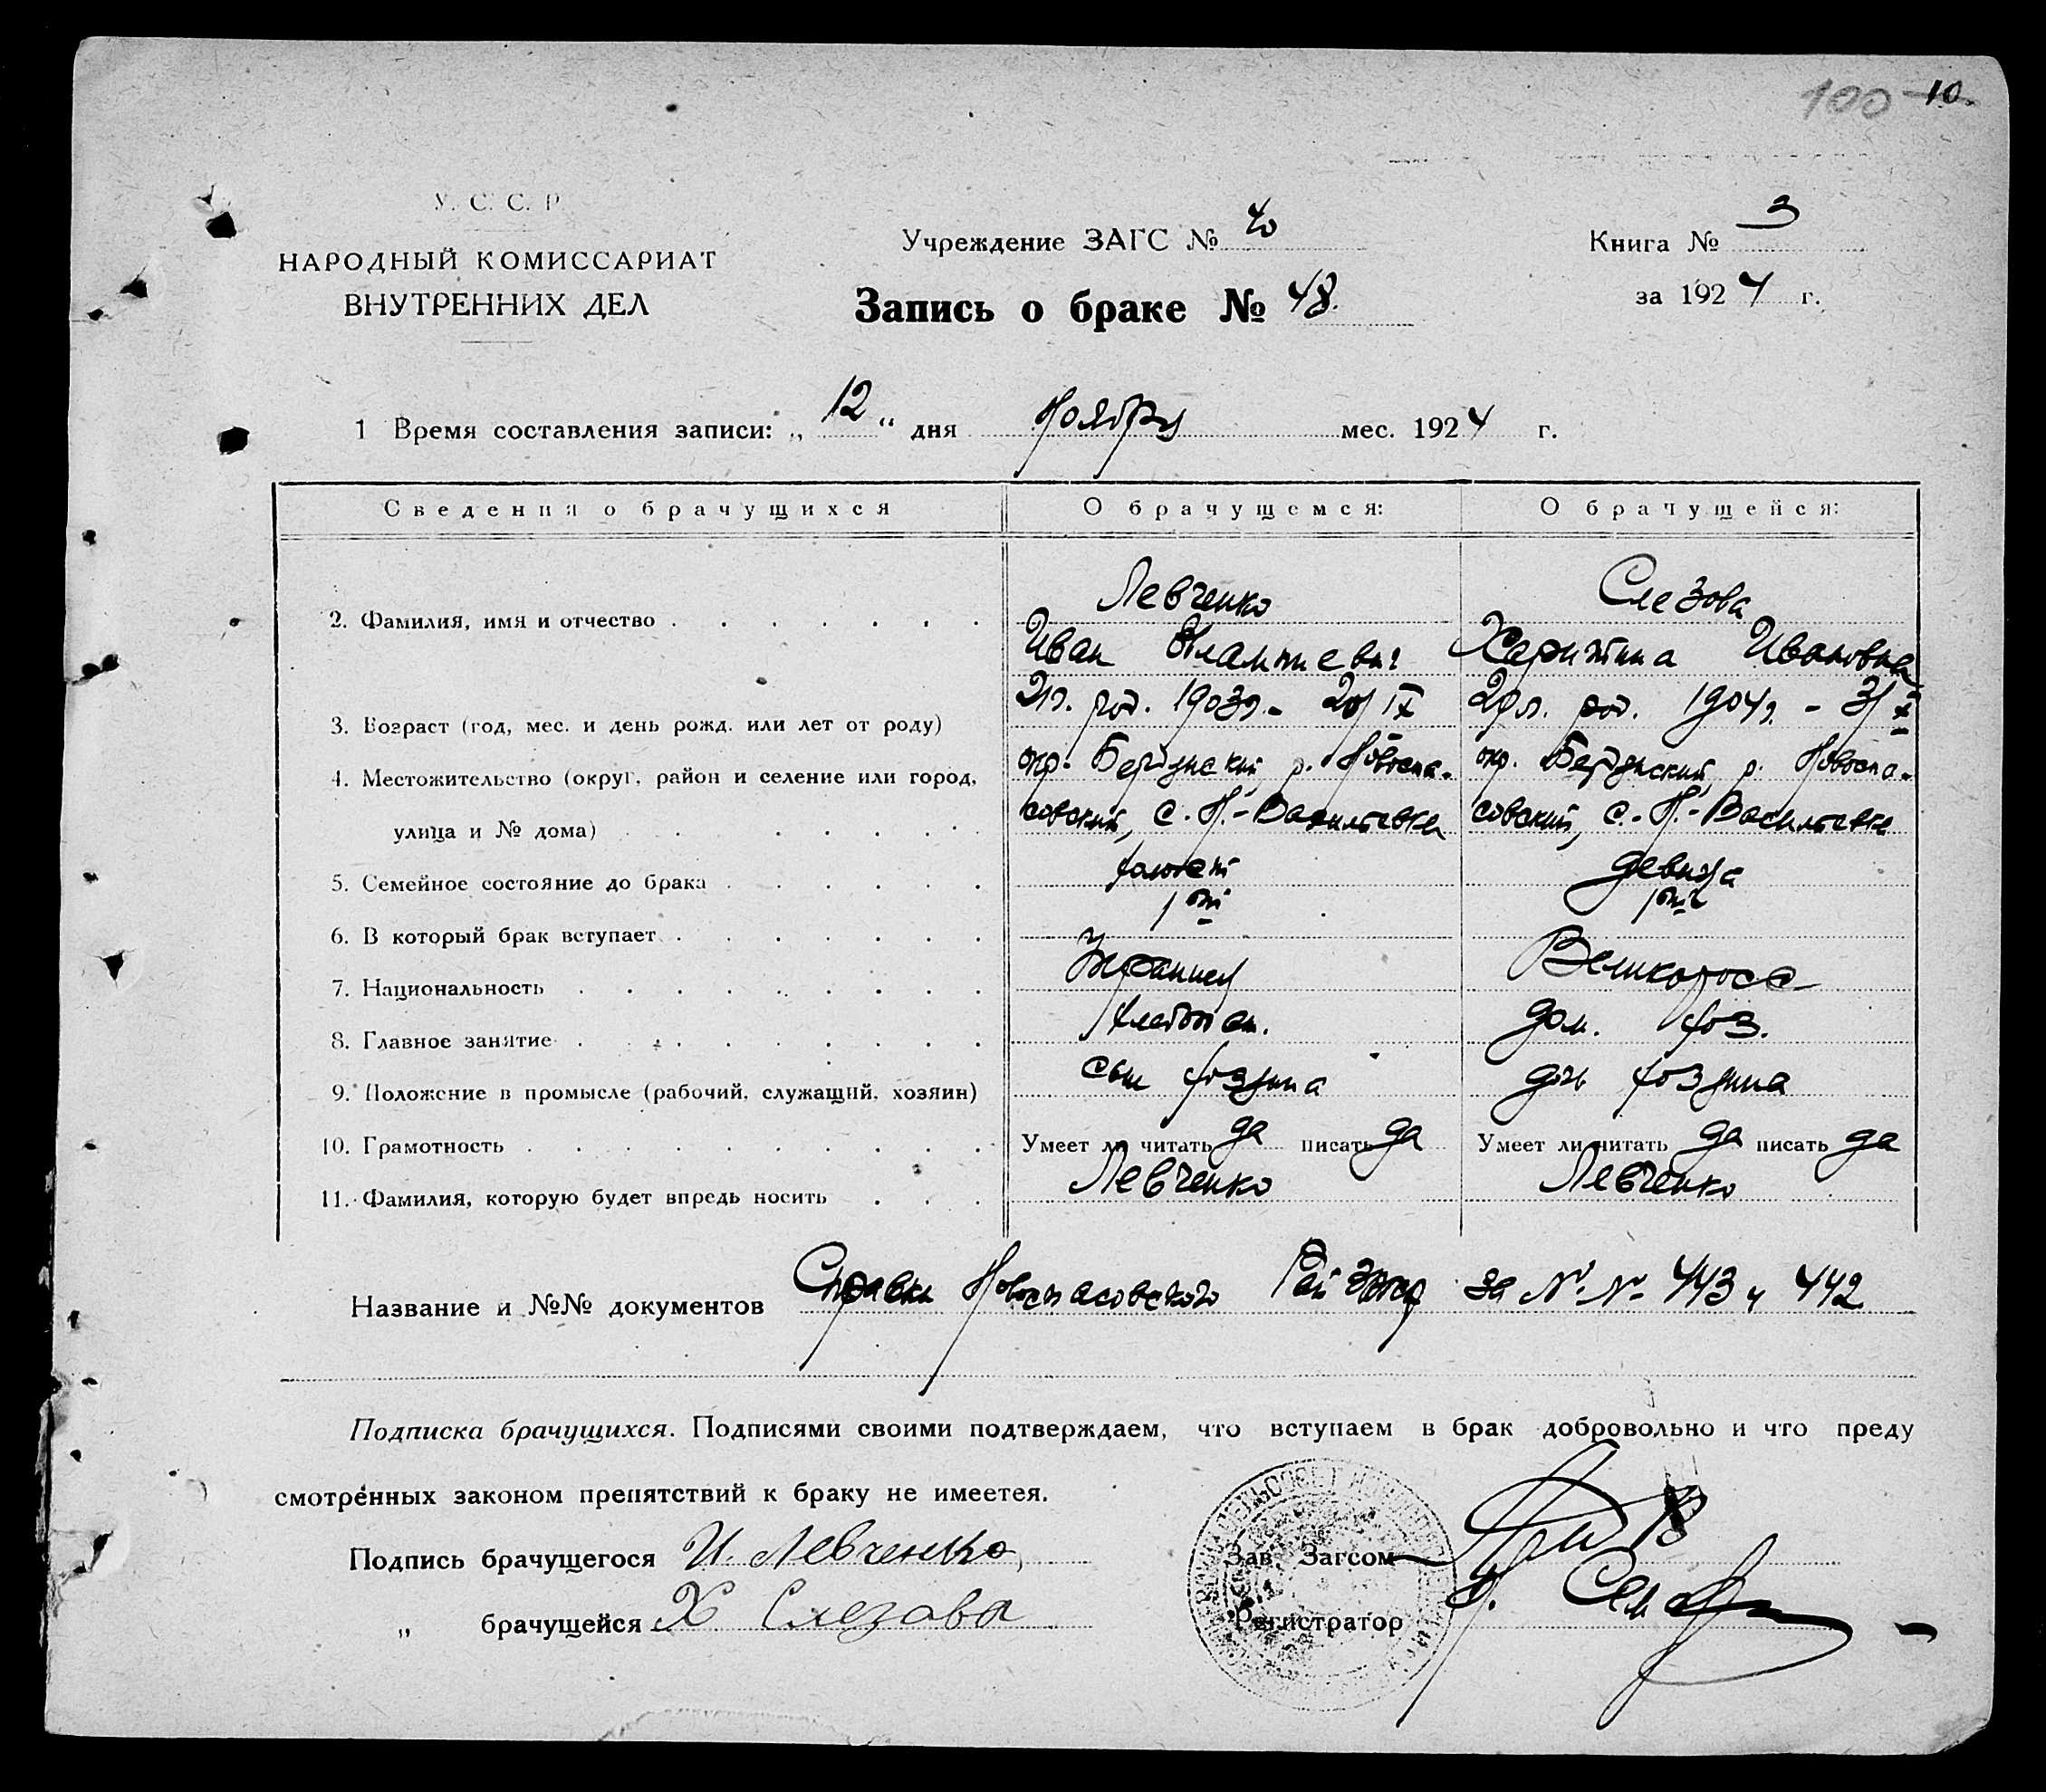 100 10.
У. С. С. Р
НАРОДНЫЙ КОМИССАРИАТ
ВНУТРЕННИХ ДЕЛ
Учреждение ЗАГС №
Запись о браке № 48.
Книга № 3
за 1924 г.
1 Время составления записи: „ 12 “ дня Ноября мес. 1924 г.
Сведения о брачущихся О брачущемся: О брачущейся:
Левченко Слезова
2. Фамилия, имя и отчество
Иван Харитина Ивановна
21г. род. 1903г. - 20/IX 20л. род. 1904г. - 3/X
3. Возраст (год, мес. и день рожд. или лет от роду)
окр. Бердянский р. Новоспа- окр. Бердянский р. Новоспа-
4. Местожительство (округ, район и селение или город,
совский, с. Н.-Васильевка совский, с. Н.-Васильевка
улица и № дома)
холост девица
5. Семейное состояние до брака
1ый 1ый
6. В который брак вступает
Украинец Великоросс
7. Национальность
хлебопаш. дом. хоз.
8. Главное занятие
сын хозяина дочь хозяина
9. Положение в промысле (рабочий, служащий, хозяин)
10. Грамотность Умеет ли читать да писать да Умеет ли читать да писать да
Левченко Левченко
11. Фамилия, которую будет впредь носить
Название и №№ документов Справки Новоспасовского за №№ 443 и 442
Подписка брачущихся. Подписями своими подтверждаем, что вступаем в брак добровольно и что преду
смотренных законом препятствий к браку не имеетея.
Подпись брачущегося И. Левченко Зав. Загсом
„ брачущейся Х Слезова Регистратор